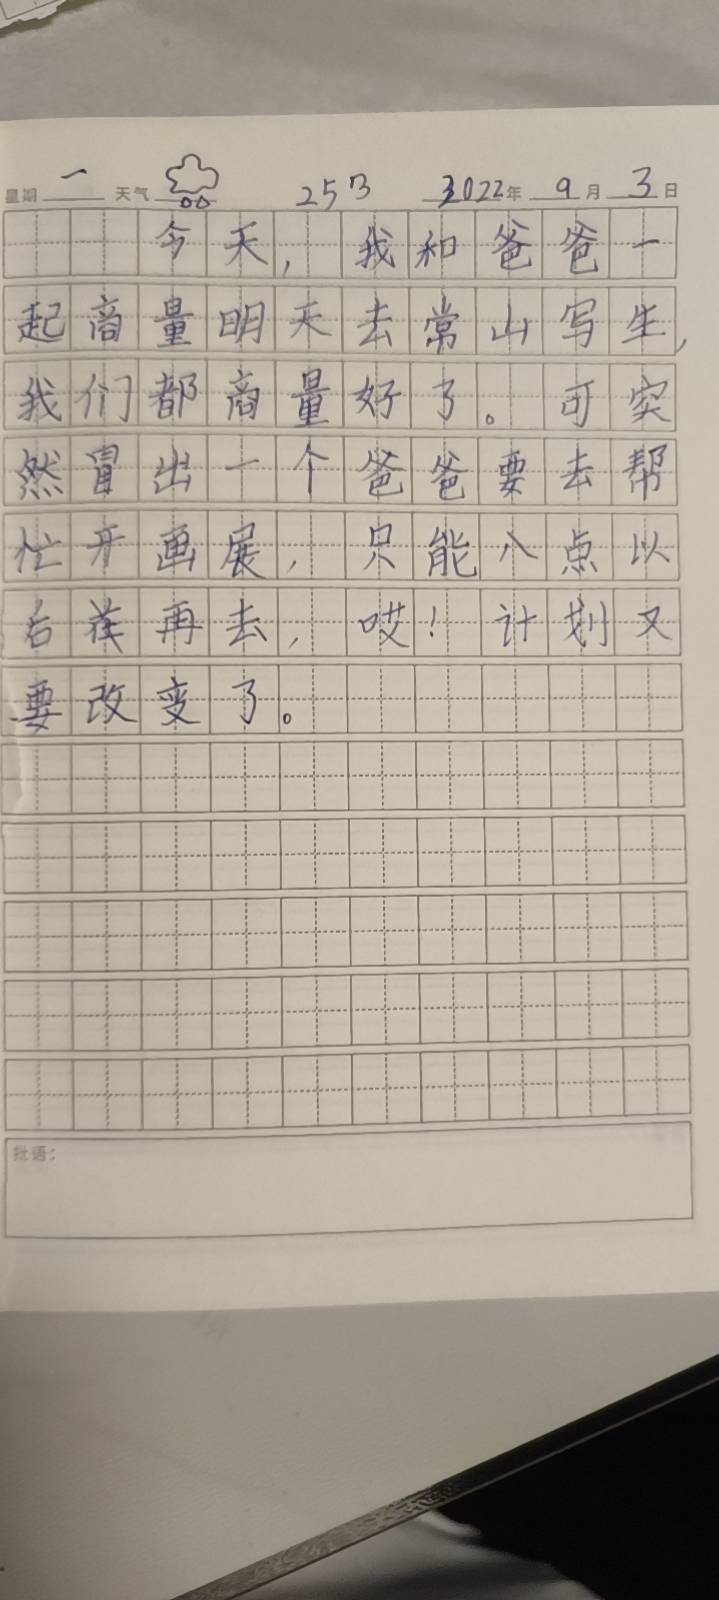 星期 一 天气 25日 2022年 9月 3日
今天，我和爸爸一
起商量明天去常山写生，
我们都商量好了。可实
然冒出一个爸爸要去帮
忙开画展，只能八点以
后再去，哎！计划又
要改变了。
批语：